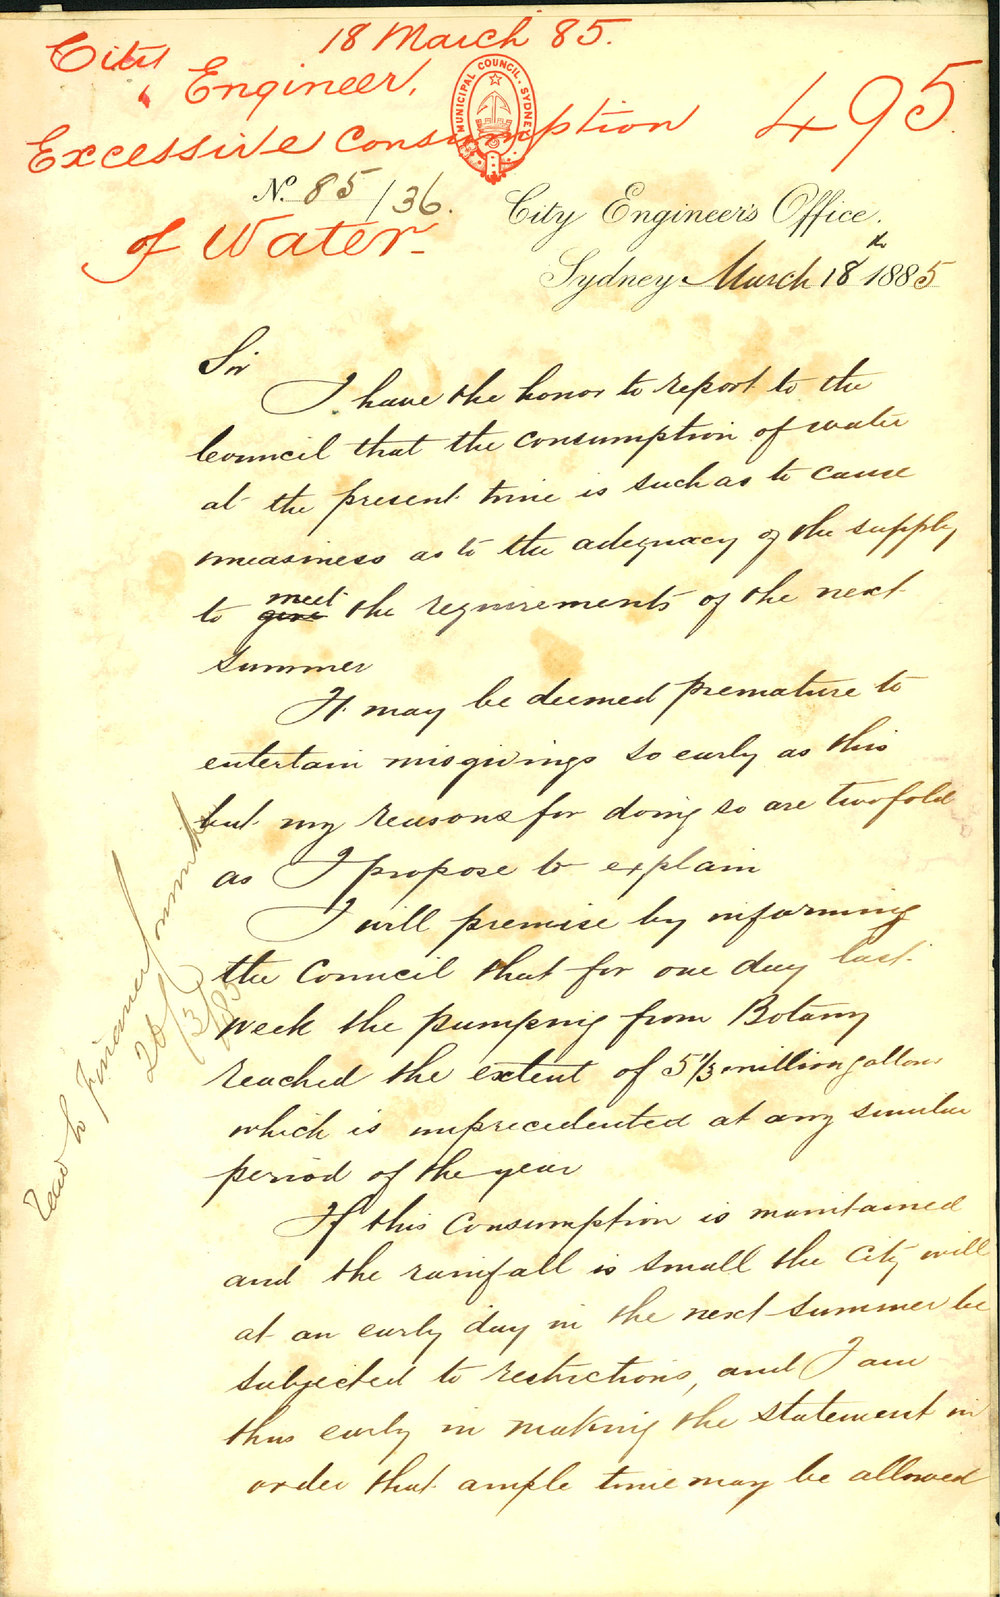 18 March 85.
City
Engineer,
495
Excessive Consumption
MUNICIPAL COUNCIL. SYDNEY
No. 85/36.
of Water
City Engineer's Office.
Sydney March 18th 1885
Sir
I have the honor to report to the
Council that the consumption of water
at the present time is such as to cause
uneasiness as to the adequacy of the supply
to give meet the requirements of the next
summer
It may be deemed premature to
entertain misgivings so early as this
but my reasons for doing so are twofold
as I propose to explain
I will premise by informing
the Council that for one day last
week the pumping from Botany
reached the extent of 5 1/3 million gallons
which is unprecedented at any similar
period of the year
If this consumption is maintained
and the rainfall is small the City will
at an early day in the next summer be
subjected to restrictions, and I am
thus early in making the statement in
order that ample time may be allowed
to Finance Committee